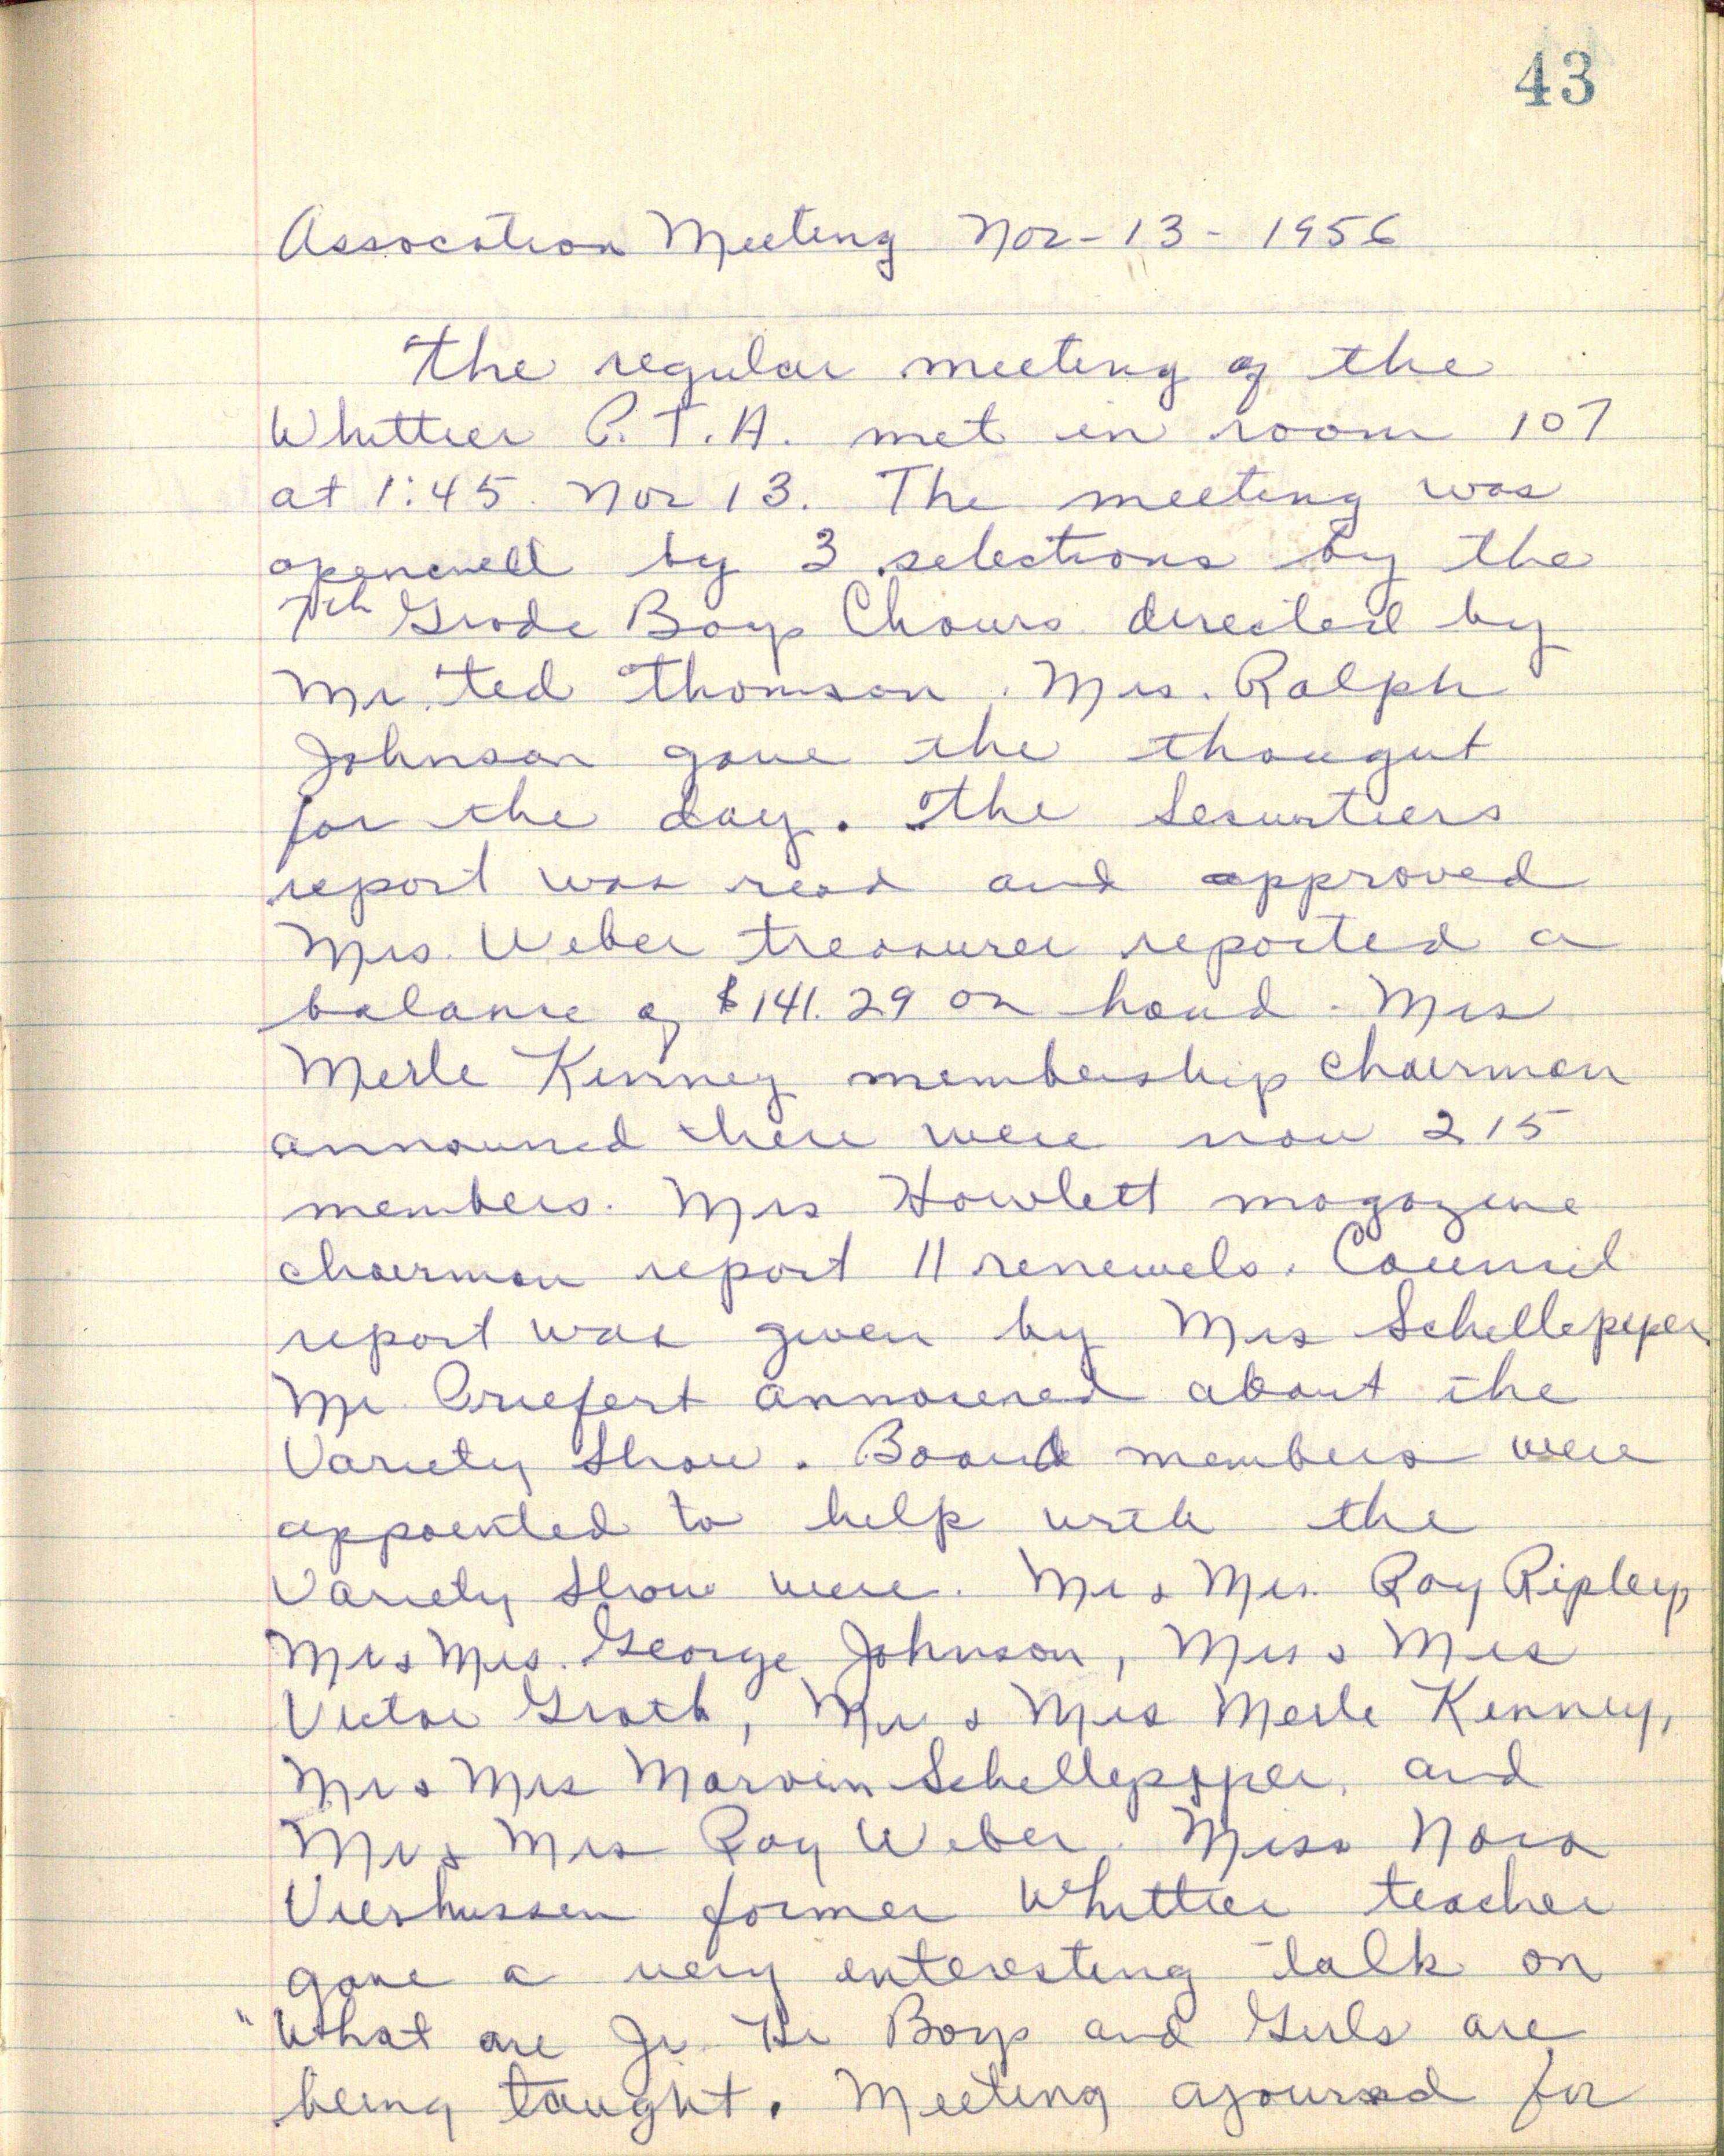 43
Assocation Meeting Nov-13-1956
The regular meeting of the
Whittier P.T.A. met in room 107
at 1:45 Nov 13. The meeting was
by 3 selections by the
7th Grade Boys Chours directed by
Mr. Ted Thomson. Mrs. Ralph
Johnson gave the thougut
for the day. The
report was read and approved
Mrs. Weber treasurer reported a
balance of $141.29 on hand. Mrs
Merle Kenney membership chairman
announed there were now 215
members. Mrs Howlett magazine
chairman report 11 renewels. Council
report was given by Mrs Schelleppeper
Mr Priefert about the
Variety Show. Board members were
appointed to help with the
Variety Show were. Mr & Mrs. Ray Ripley,
Mr & Mrs. George Johnson, Mr & Mrs
Victor Groth, Mr & Mrs Merle Kenney,
Mr & Mrs Marvin Schellepepper, and
Mr & Mrs Ray Weber. Miss Nora
former Whittier teacher
gave a very interesting talk on
"What are Jr Hi Boys and Girls are
being taught. Meeting for